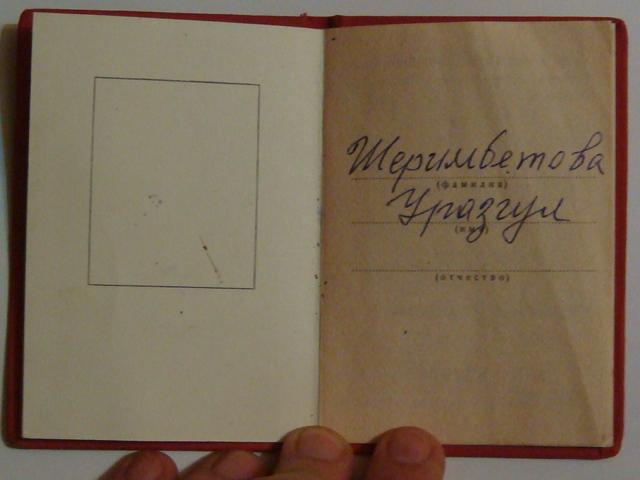 Шеримбетова
(фамилия)
Уразгул
(имя)
(отчество)